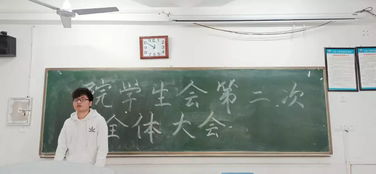 院学生会第二次
全体大会